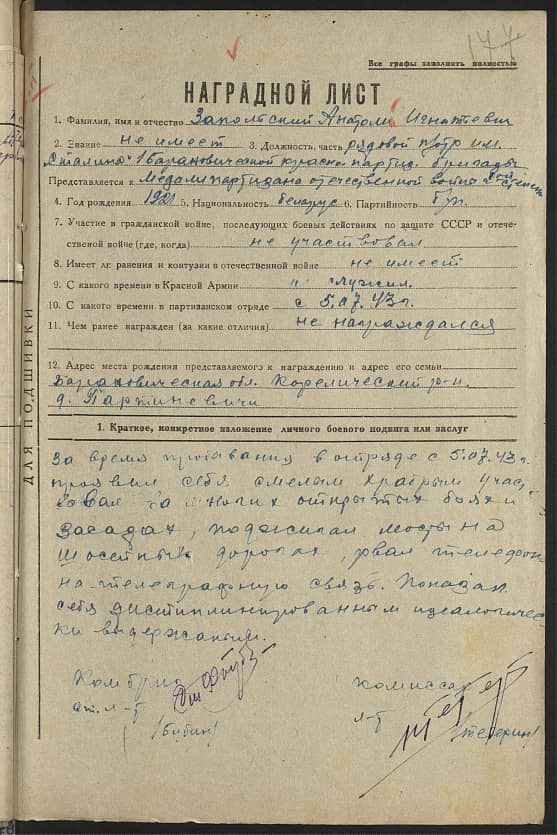 177
Все графы заполнить полностью
НАГРАДНОЙ ЛИСТ
1. Фамилия, имя и отчество Запольский Анатолий Игнатьевич
2. Звание не имеет 3. Должность, часть рядовой п/отр им.
Сталина 1 Барановической краснопартиз. бригады
Представляется к Медали партизана отечественной войны 2ой степени
4. Год рождения 1921 5. Национальность беларус 6. Партийность б/п.
7. Участие в гражданской войне, последующих боевых действиях по защите СССР и отече-
ственой войне (где, когда) не участвовал
8. Имеет ли ранения и контузии в отечественной войне не имеет
9. С какого времени в Красной Армии служил
10. С какого времени в партизанском отряде с 5.07.43 г.
11. Чем ранее награжден (за какие отличия) не награждался
12. Адрес места рождения представляемого к награждению и адрес его семьи
Барановическая обл. Корелический р-н.
д.
1. Краткое, конкретное изложение личного боевого подвига или заслуг
За время пребывания в отряде с 5.07.43 г.
проявил себя смелым храбрым участ
вовал во многих открытых боях и
засадах, поджигал мосты на
шоссейных дорогах, рвал телефон
на-телеграфную связь. Показал
себя дистиплинированным идеологичес
ки выдержаным.
Комбриг комиссар
ст. л-т л-т
ДЛЯ ПОДШИВКИ